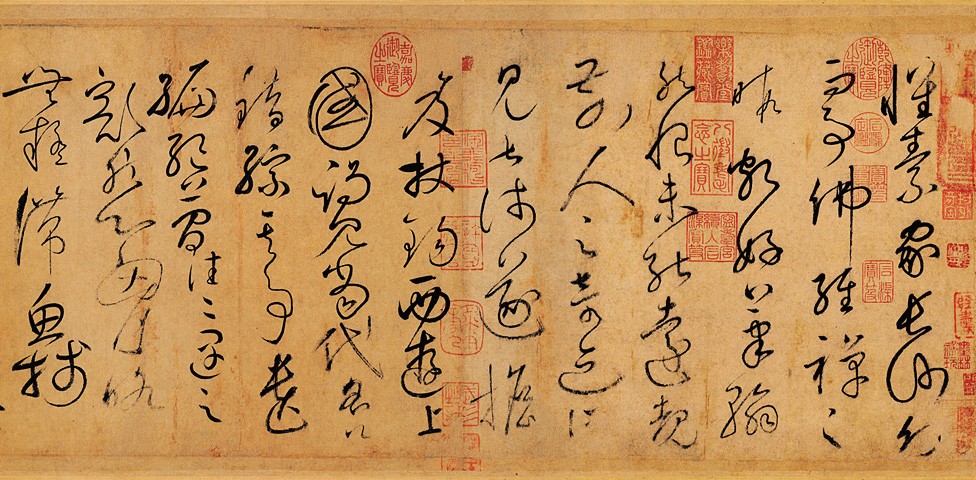 懷素家長沙幼
而事佛經禪之
暇頗好筆翰
然恨未能遠覩
前人之奇迹所
見甚淺遂擔
笈杖錫西遊上
國謁見當代名公
錯綜其事遺
編絕簡往往遇之
豁然心胸略
無疑滯魚牋
嘉慶御覽之寶